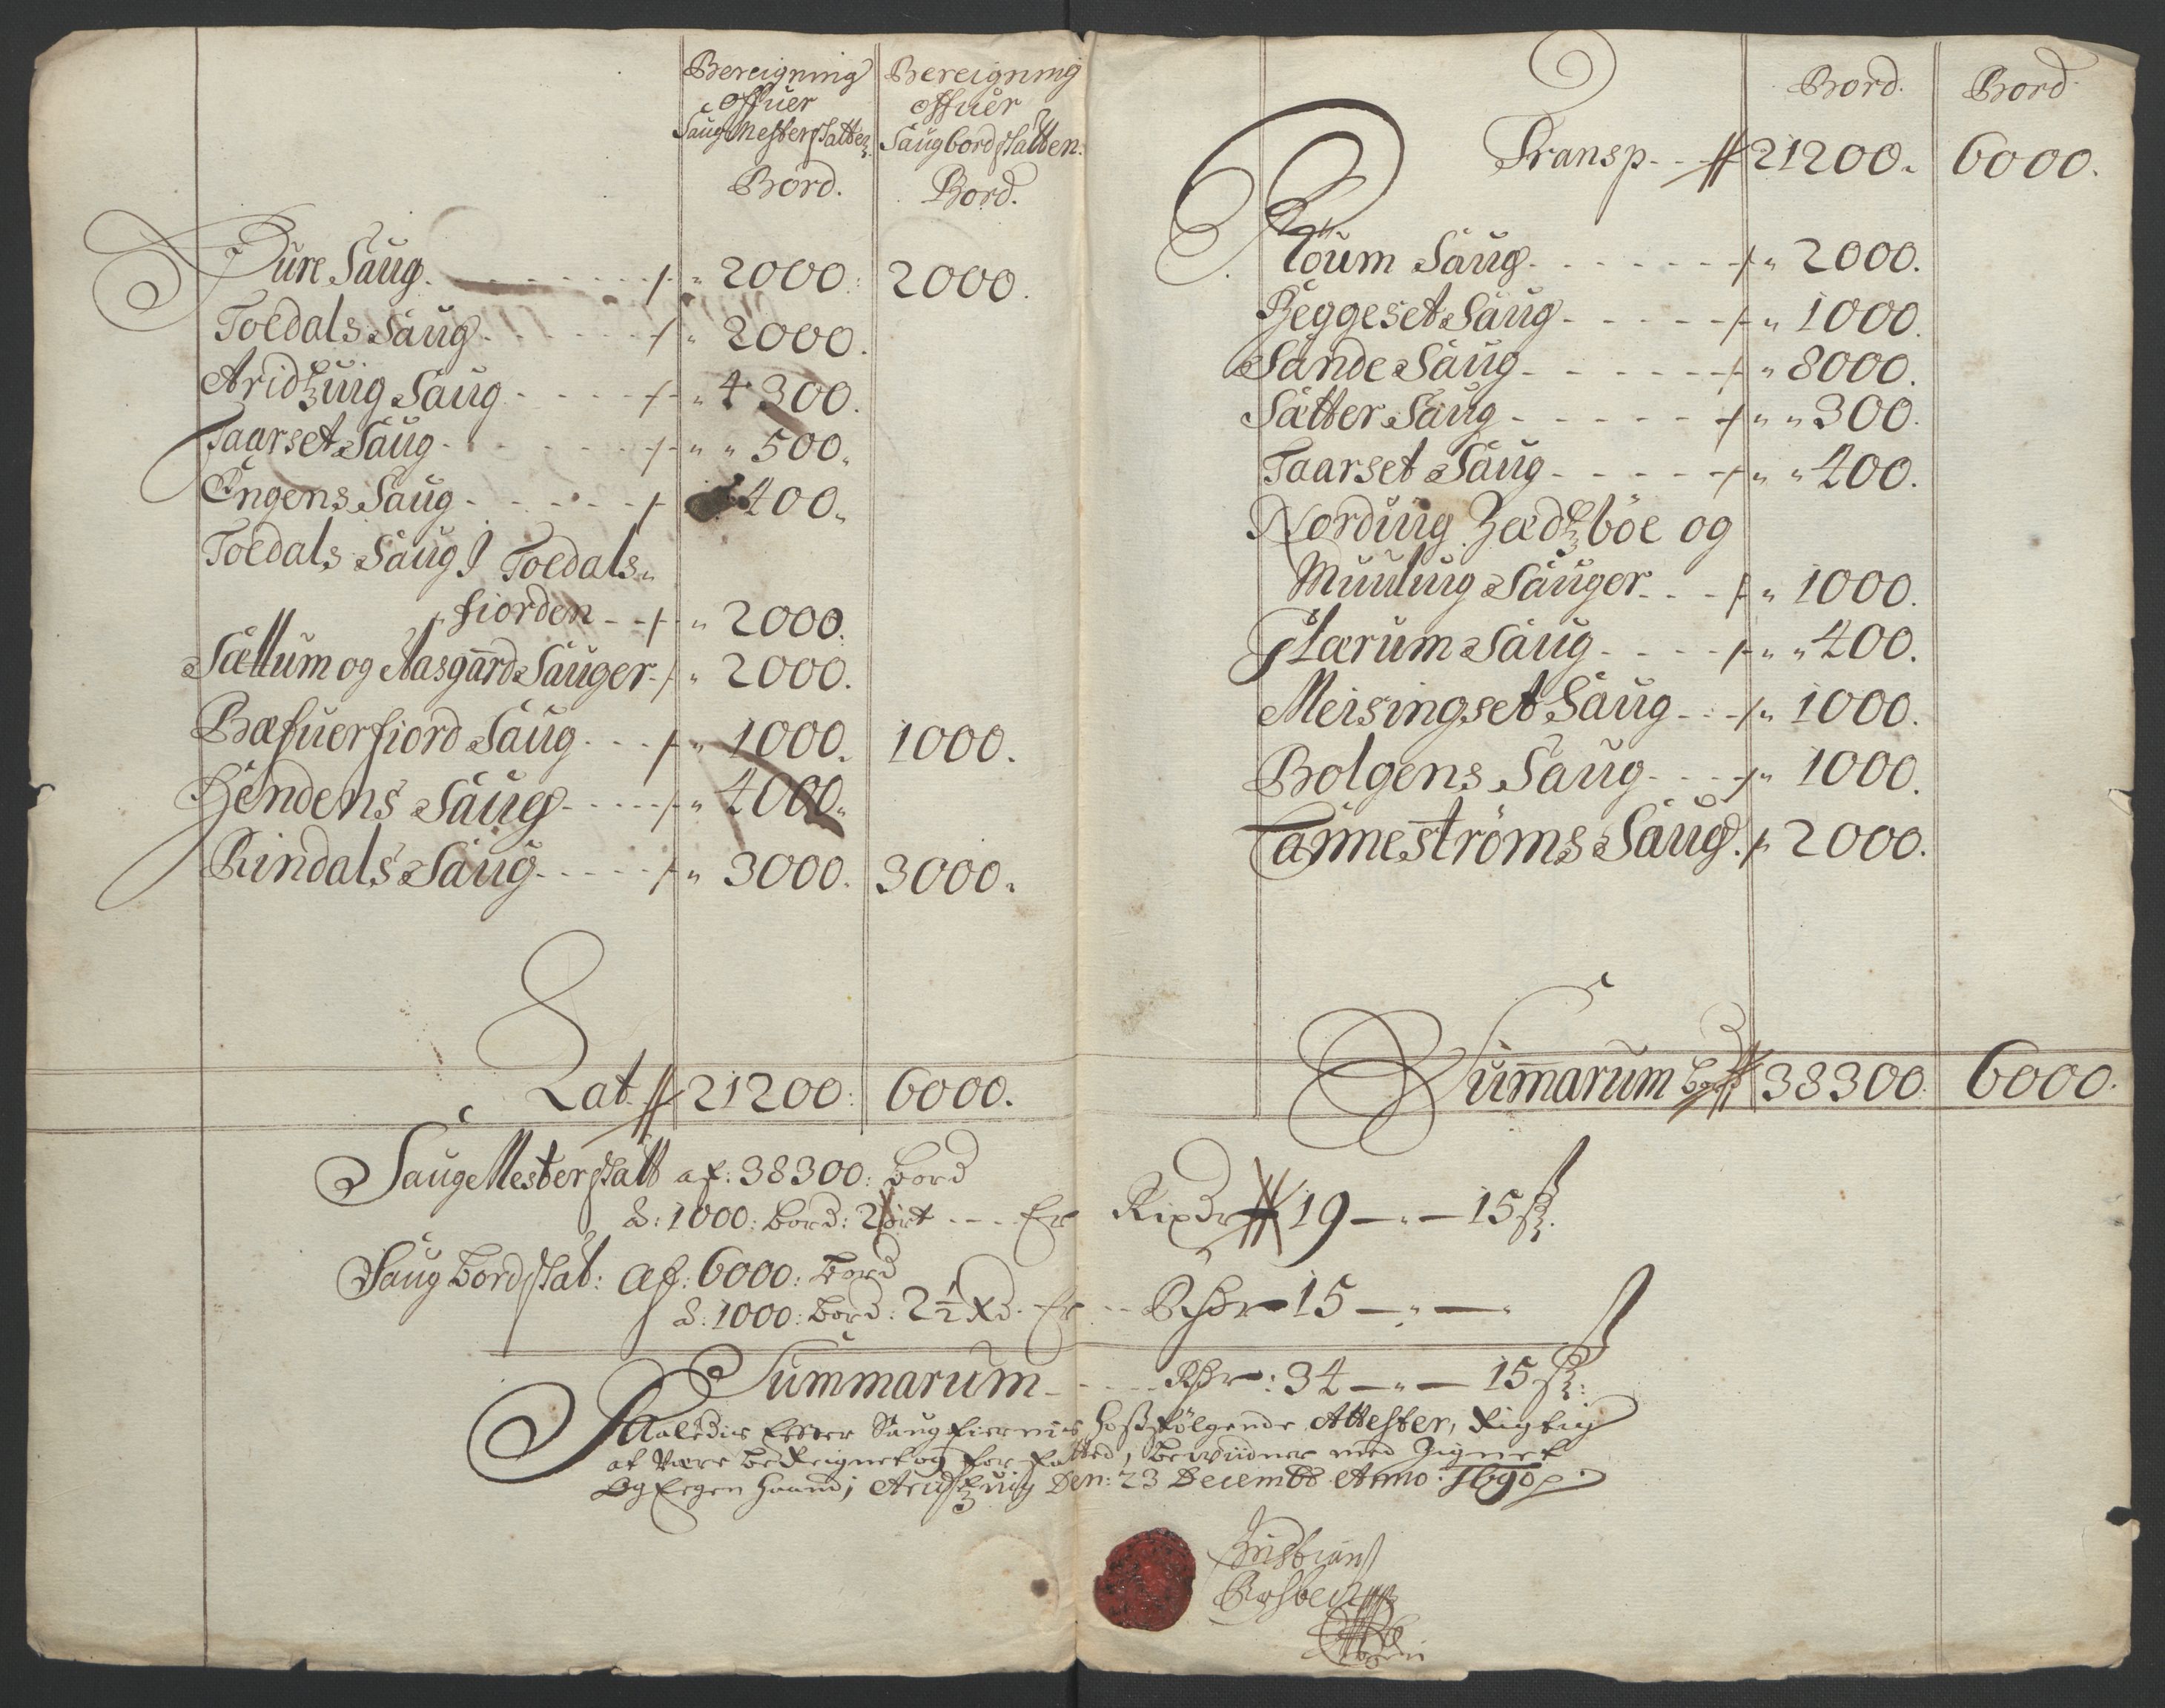 Bereigning
offuer
Saug Mesterskatten.
Bord.
Bereigning
offuer
Saugbordskatten.
Bord.
Pure Saug. 2000. 2000.
Toedals Saug. 2000.
Aridtzuig Saug 4300.
Taarset Saug 500.
Engens Saug 400.
Toedals Saug I Toedals
fiorden 2000.
Sættum og Aasgard Sauger 2000.
Bæfuerfiord Saug 1000. 1000.
Hendens Saug 4000.
Rindals Saug 3000. 3000.
Lat. 21200: 6000.
Bord. Bord
Transp. 21200. 6000.
Roum Saug. 2000.
Heggeset Saug 1000.
Sande Saug 8000.
Sætter Saug 300.
Taarset Saug 400.
Norduig Hædtzböe og
Muuluig Sauger 1000.
Glærum Saug 400.
Meisingset Saug 1000.
Bolgens Saug 1000.
Tanneströms Saug. 2000.
Summarum bord 38300 6000.
Sauge Mesterskatt af: 38300: bord
à: 1000: bord: 2 ort Er Rixdr 19 — " — 15 s.
Saug bordskat: af: 6000: bord
à: 1000: bord: 2½ Rd. Er Rdr 15 — " —
Summarum Rdr: 34 — " — 15 s:
Saaledis Efter Saug Eiernis Hosfölgende Attester, Rigtig
at Være beReignet og forfatted, beviidner med Zignet
Og Egen Haand; Aridtzuig Den: 23 Decemb Anno: 1690